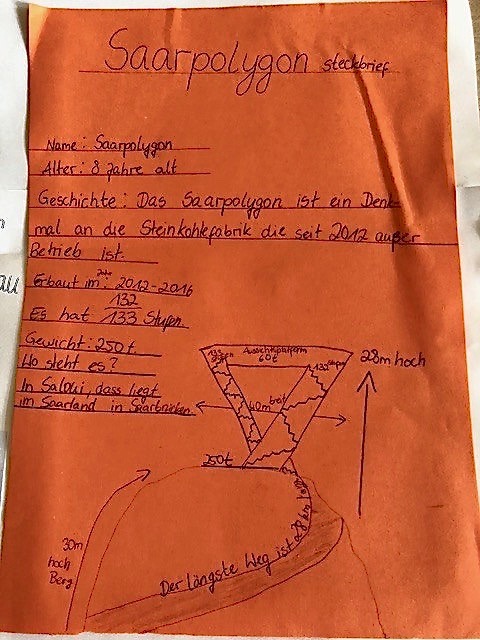 Saarpolygon steckbrief
Name: Saarpolygon
Alter: 8 Jahre alt
Geschichte: Das Saarpolygon ist ein Denk-
mal an die Steinkohlefabrik die seit 2012 außer
Betrieb ist.
Erbaut im Jahr: 2012-2016
132
Es hat 133 Stufen
Gewicht: 250t
Wo steht es?
In Saloui, dass liegt
im Saarland in Saarbrücken.
133 Stufen
Aussichtsplatform
60t
132 Stufen
28m hoch
40m breit
250t
30m
hoch
Berg
Der längste Weg ist 28 km lang